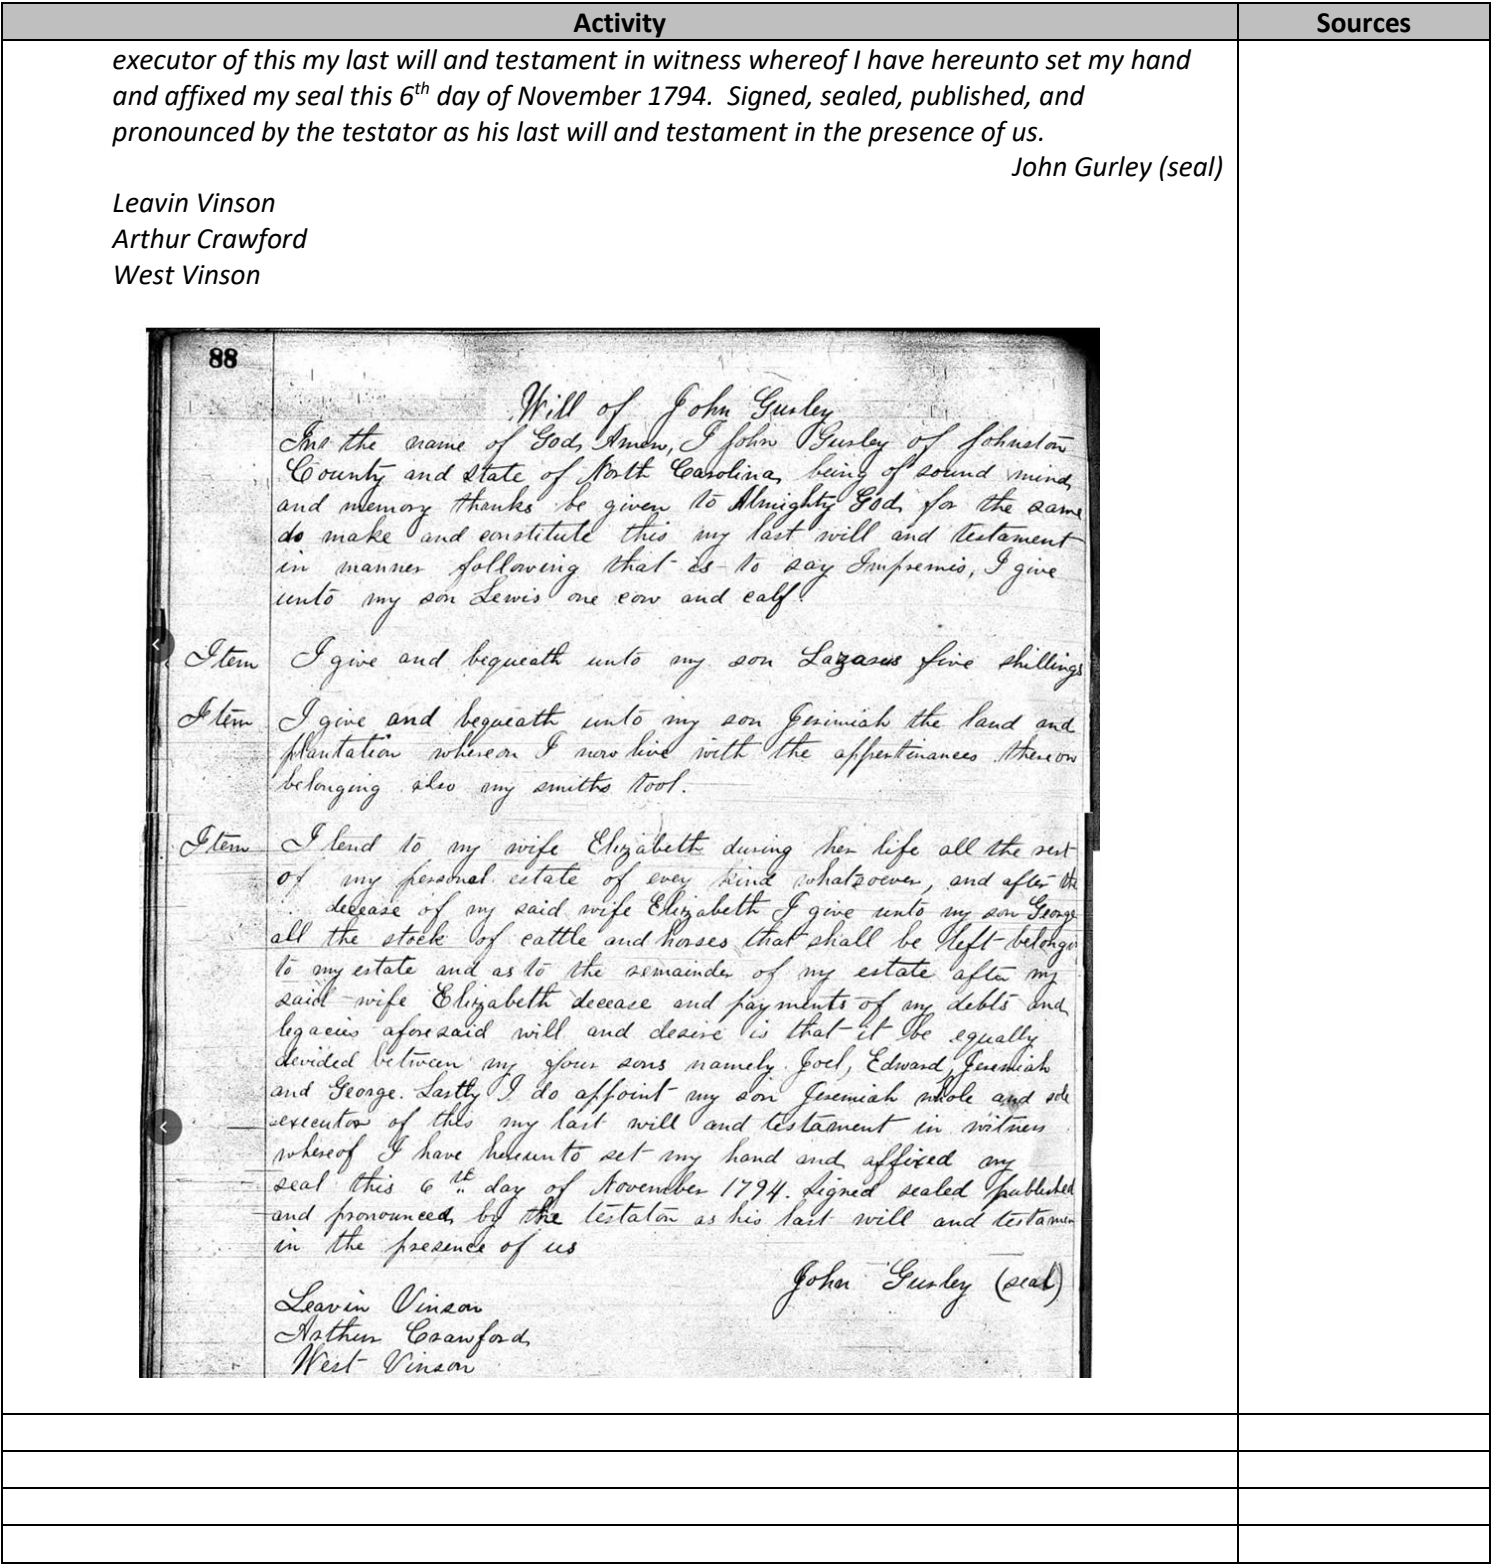 Activity Sources
executor of this my last will and testament in witness whereof I have hereunto set my hand
and affixed my seal this 6th day of November 1794.  Signed, sealed, published, and
pronounced by the testator as his last will and testament in the presence of us.
John Gurley (seal)
Leavin Vinson
Arthur Crawford
West Vinson
88
Will of John Gurley
In the name of God, Amen, I John Gurley of Johnston
County and state of North Carolina, being of sound mind,
and memory thanks be given to Almighty God, for the same
do make and constitute this my last will and testament
in manner following that is to say Impremis, I give
unto my son Lewis one cow and calf.
Item I give and bequeath unto my son Lazarus five shillings
Item I give and bequeath unto my son Jerimiah the land and
plantation whereon I now live with the appertinances thereon
belonging also my smiths tool.
Item I lend to my wife Elizabeth during her life all the rest
of my personal estate of evey kind whatsoever, and after the
decease of my said wife Elizabeth I give unto my son George
all the stock of cattle and horses that shall be left belongi
to my estate and as to the remainder of my estate after my
said wife Elizabeth decease and payments of my debts and
legacies aforesaid will and desire is that it be equally
devided between my four sons namely Joel, Edward, Jeremiah
and George. Lastly I do appoint my son Jeremiah whole and sole
executor of this my last will and testament in witness
whereof I have hereunto set my hand and affixed my
seal this 6th day of November 1794. Signed sealed published
and pronounced by the testator as his last will and testamen
in the presence of us
John Gurley (seal)
Leavin Vinson
Arthur Crawford
West Vinson